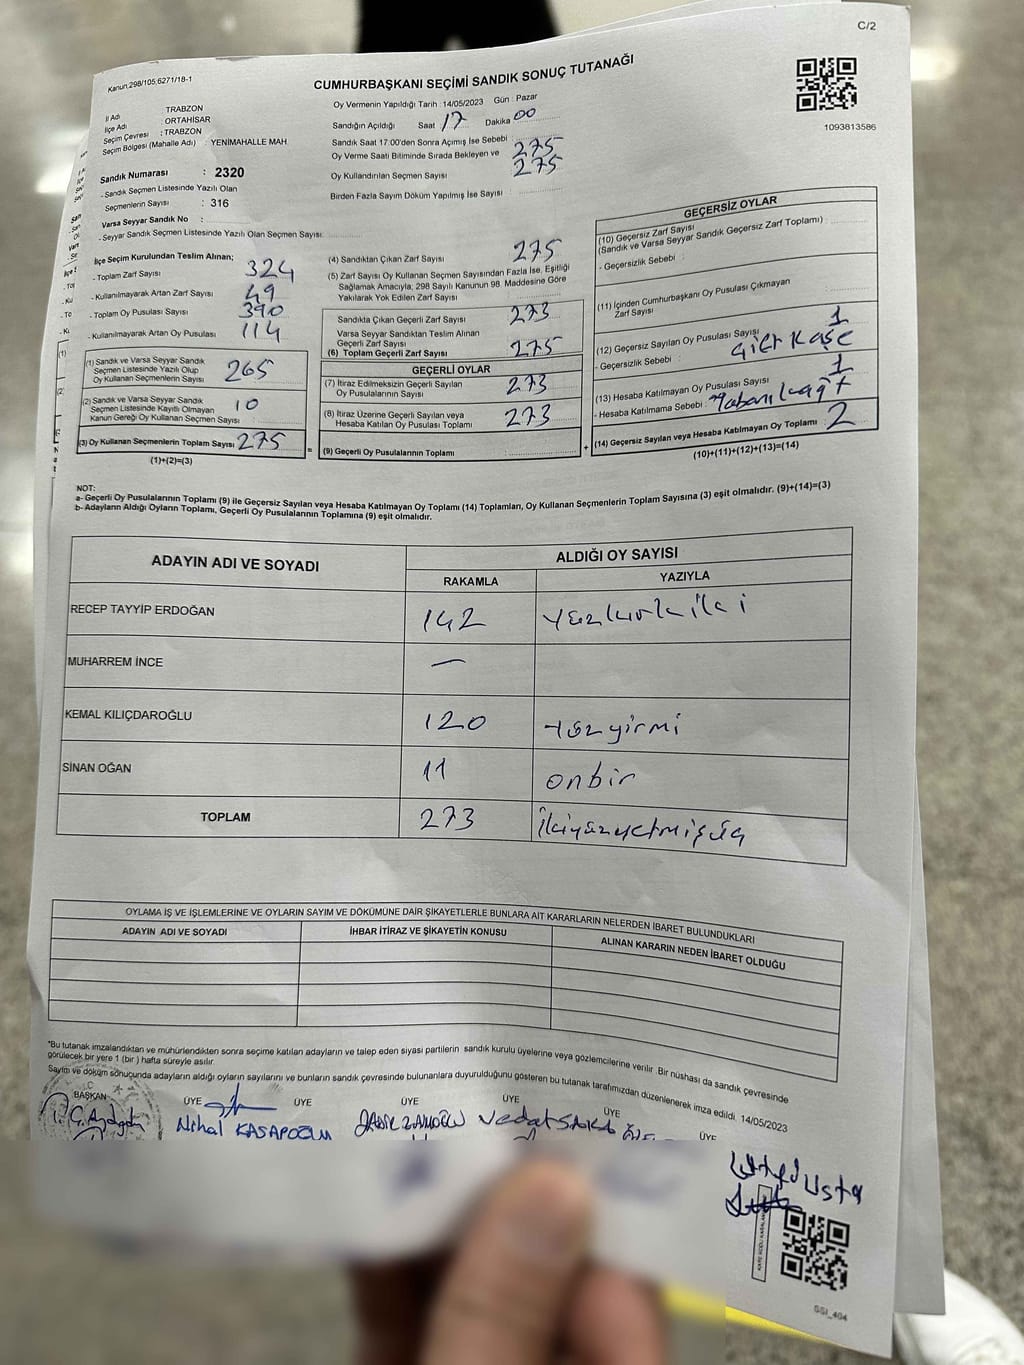 C/2
Kanun,298/105,6271/18-1
CUMHURBAŞKANI SEÇİMİ SANDIK SONUÇ TUTANAĞI
1093813586
İl Adı : TRABZON
İlçe Adı : ORTAHİSAR
Seçim Çevresi : TRABZON
Seçim Bölgesi (Mahalle Adı) : YENİMAHALLE MAH
Sandık Numarası : 2320
- Sandık Seçmen Listesinde Yazılı Olan
Seçmenlerin Sayısı : 316
Varsa Seyyar Sandık No :
- Seyyar Sandık Seçmen Listesinde Yazılı Olan Seçmen Sayısı:
Oy Vermenin Yapıldığı Tarih : 14/05/2023 Gün : Pazar
Sandığın Açıldığı Saat 17 Dakika 00
Sandık Saat 17:00'den Sonra Açımış İse Sebebi
Oy Verme Saati Bitiminde Sırada Bekleyen ve 275
Oy Kullandırılan Seçmen Sayısı 275
Birden Fazla Sayım Döküm Yapılmış İse Sayısı
İlçe Seçim Kurulundan Teslim Alınan;
- Toplam Zarf Sayısı 324
- Kullanılmayarak Artan Zarf Sayısı 49
- Toplam Oy Pusulası Sayısı 390
- Kullanılmayarak Artan Oy Pusulası 114
(1) Sandık ve Varsa Seyyar Sandık
Seçmen Listesinde Yazılı Olup
Oy Kullanan Seçmenlerin Sayısı 265
(2) Sandık ve Varsa Seyyar Sandık
Seçmen Listesinde Kayıtlı Olmayan
Kanun Gereği Oy Kullanan Seçmen Sayısı : 10
(3) Oy Kullanan Seçmenlerin Toplam Sayısı 275
(1)+(2)=(3)
(4) Sandıktan Çıkan Zarf Sayısı 275
(5) Zarf Sayısı Oy Kullanan Seçmen Sayısından Fazla İse, Eşitliği
Sağlamak Amacıyla, 298 Sayılı Kanunun 98. Maddesine Göre
Yakılarak Yok Edilen Zarf Sayısı
Sandıkta Çıkan Geçerli Zarf Sayısı 273
Varsa Seyyar Sandıktan Teslim Alınan
Geçerli Zarf Sayısı
(6) Toplam Geçerli Zarf Sayısı 275
GEÇERLİ OYLAR
(7) İtiraz Edilmeksizin Geçerli Sayılan
Oy Pusulalarının Sayısı 273
(8) İtiraz Üzerine Geçerli Sayılan veya
Hesaba Katılan Oy Pusulası Toplamı 273
= (9) Geçerli Oy Pusulalarının Toplamı : +
GEÇERSİZ OYLAR
(10) Geçersiz Zarf Sayısı
(Sandık ve Varsa Seyyar Sandık Geçersiz Zarf Toplamı) :
- Geçersizlik Sebebi :
(11) İçinden Cumhurbaşkanı Oy Pusulası Çıkmayan
Zarf Sayısı :
(12) Geçersiz Sayılan Oy Pusulası Sayısı 1
- Geçersizlik Sebebi : Çift Kaşe
(13) Hesaba Katılmayan Oy Pusulası Sayısı 1
- Hesaba Katılmama Sebebi :
(14) Geçersiz Sayılan veya Hesaba Katılmayan Oy Toplamı : 2
(10)+(11)+(12)+(13)=(14)
NOT:
a- Geçerli Oy Pusulalarının Toplamı (9) ile Geçersiz Sayılan veya Hesaba Katılmayan Oy Toplamı (14) Toplamları, Oy Kullanan Seçmenlerin Toplam Sayısına (3) eşit olmalıdır. (9)+(14)=(3)
b- Adayların Aldığı Oyların Toplamı, Geçerli Oy Pusulalarının Toplamına (9) eşit olmalıdır.
ADAYIN ADI VE SOYADI ALDIĞI OY SAYISI
RAKAMLA YAZIYLA
RECEP TAYYİP ERDOĞAN 142 yüzkırkiki
MUHARREM İNCE —
KEMAL KILIÇDAROĞLU 120 yüzyirmi
SİNAN OĞAN 11 onbir
TOPLAM 273 ikiyüzyetmişüç
OYLAMA İŞ VE İŞLEMLERİNE VE OYLARIN SAYIM VE DÖKÜMÜNE DAİR ŞİKAYETLERLE BUNLARA AİT KARARLARIN NELERDEN İBARET BULUNDUKLARI
ADAYIN ADI VE SOYADI İHBAR İTİRAZ VE ŞİKAYETİN KONUSU ALINAN KARARIN NEDEN İBARET OLDUĞU
*Bu tutanak imzalandıktan ve mühürlendikten sonra seçime katılan adayların ve talep eden siyasi partilerin sandık kurulu üyelerine veya gözlemcilerine verilir. Bir nüshası da sandık çevresinde
görülecek bir yere 1 (bir) hafta süreyle asılır.
Sayım ve döküm sonucunda adayların aldığı oyların sayılarını ve bunların sandık çevresinde bulunanlara duyurulduğunu gösteren bu tutanak tarafımızdan düzenlenerek imza edildi. 14/05/2023
BAŞKAN ÜYE ÜYE ÜYE ÜYE ÜYE ÜYE
Nihal KASAPOĞLU
GSI_404